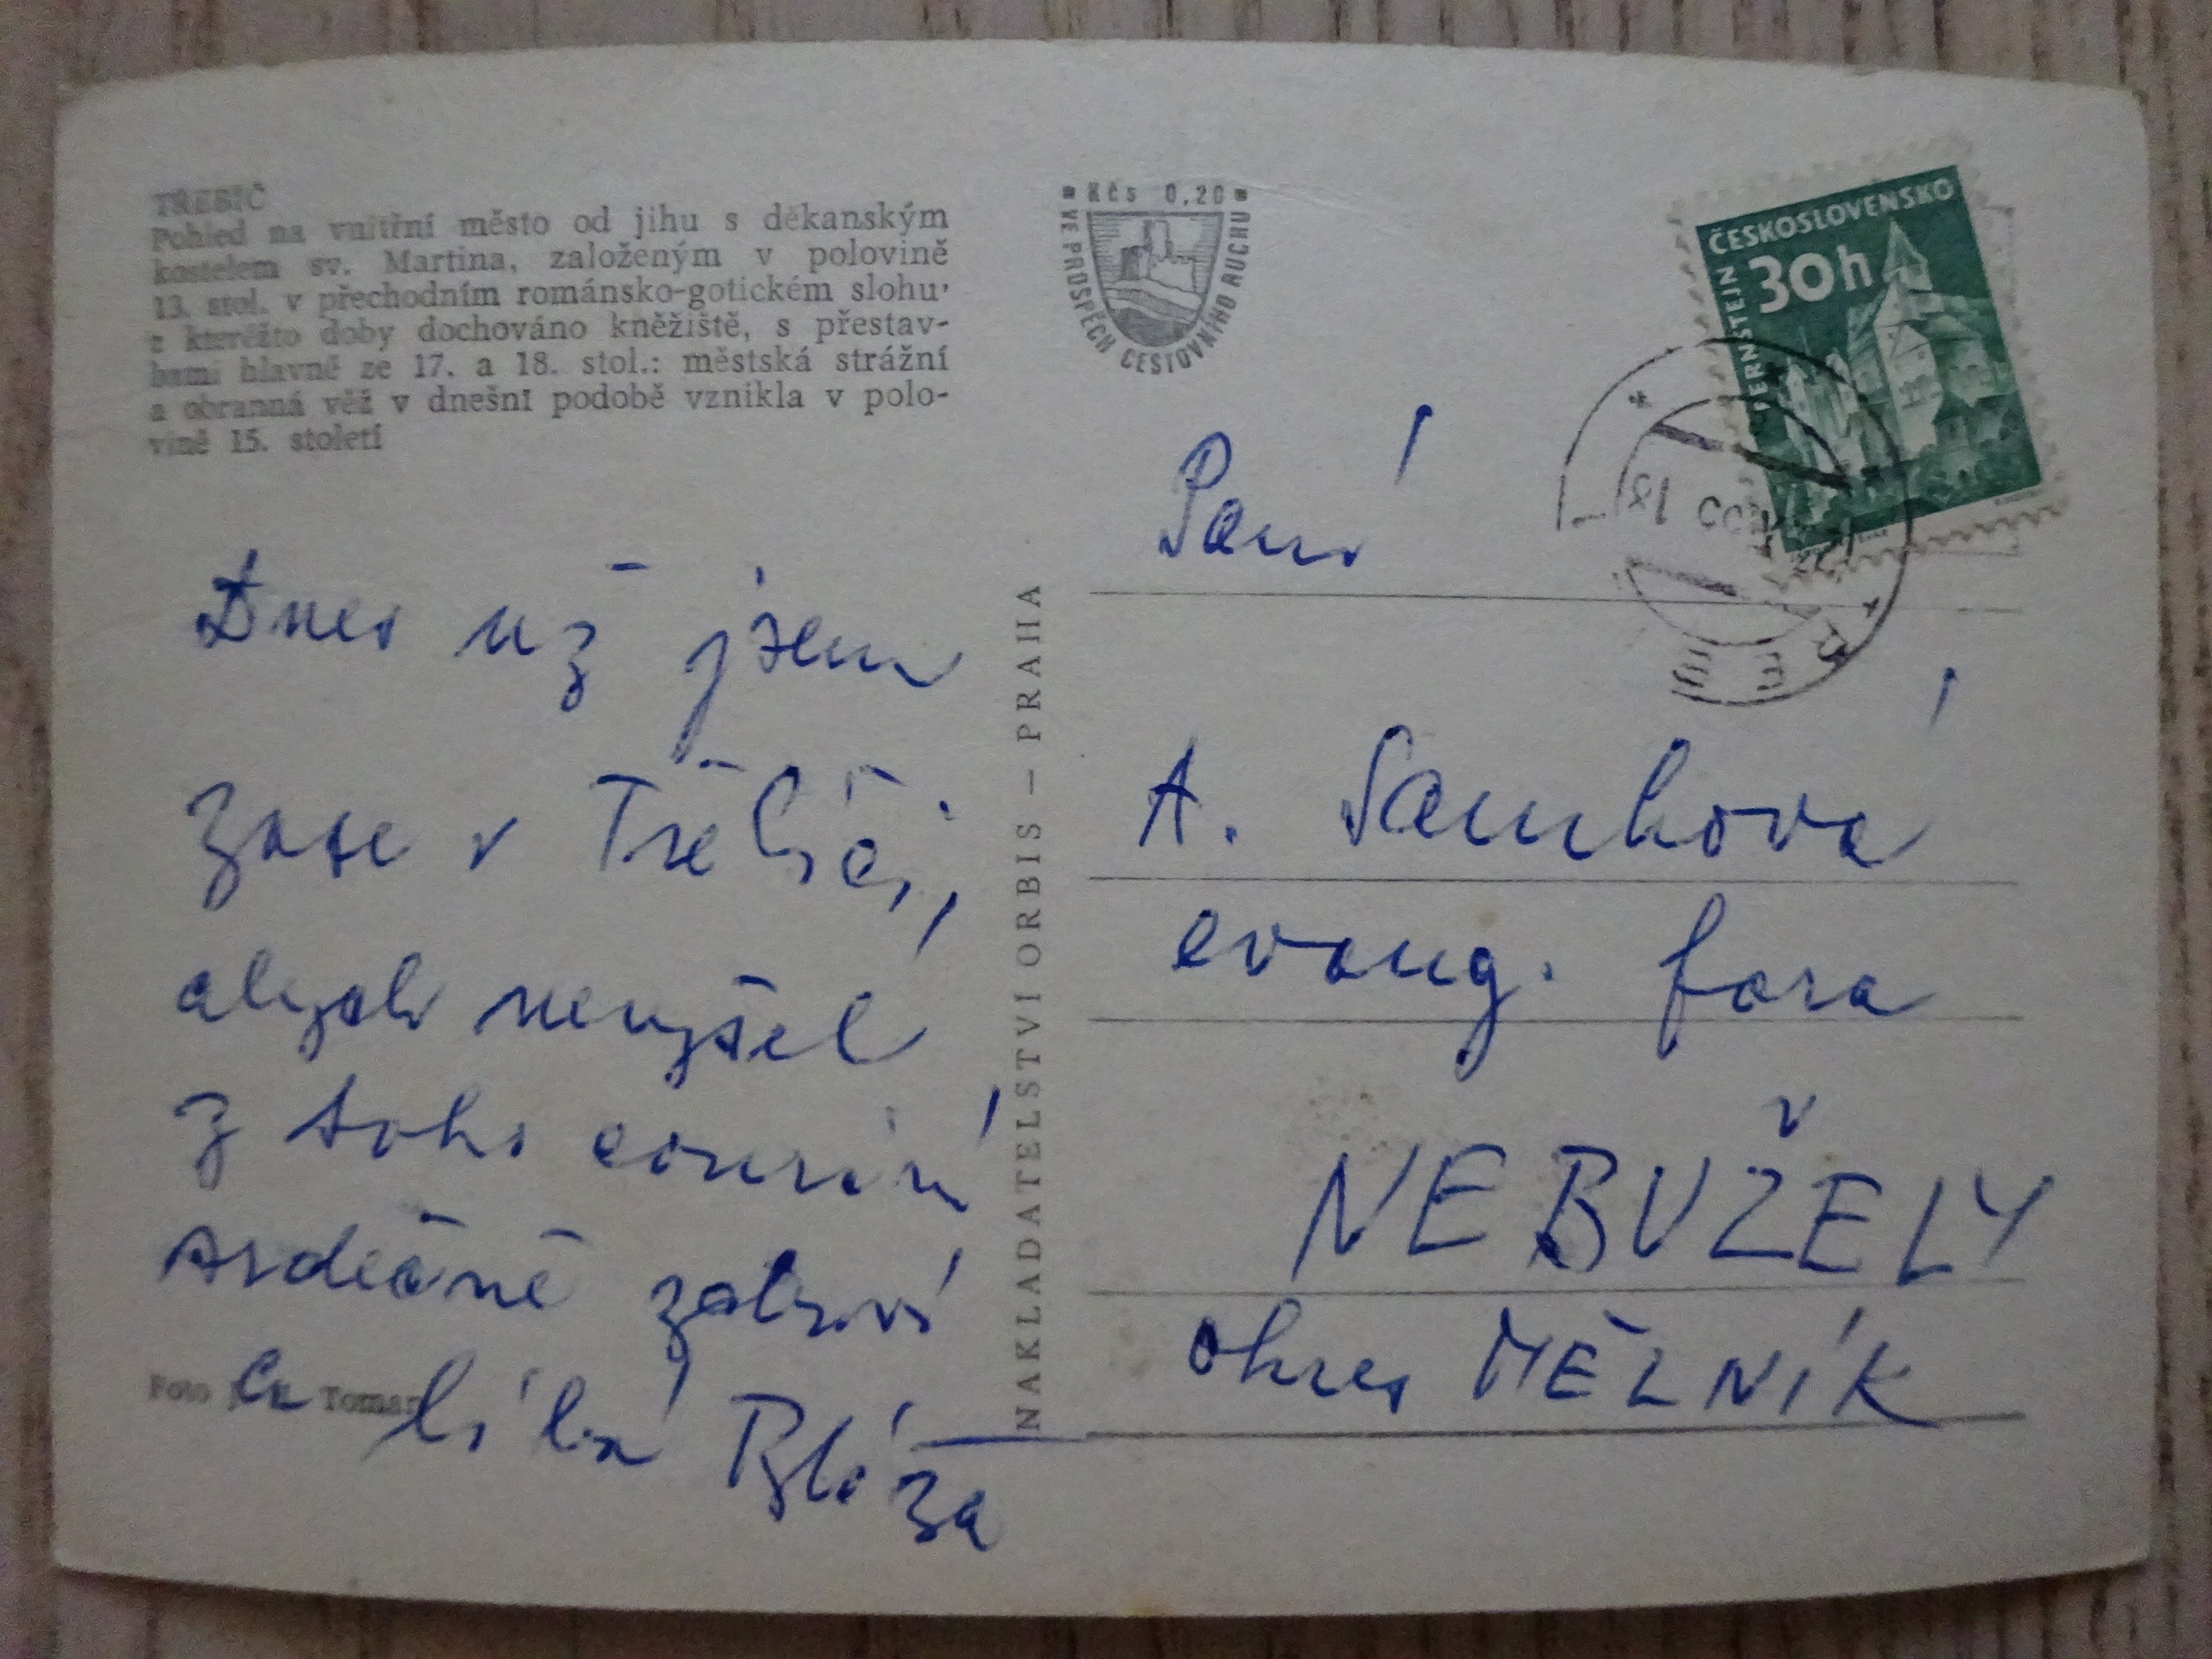 TŘEBÍČ
Pohled na vnitřní město od jihu s děkanským
kostelem sv. Martina, založeným v polovině
13. stol. v přechodním románsko-gotickém slohu,
z kteréžto doby dochováno kněžiště, s přestav-
bami hlavně ze 17. a 18. stol.: městská strážní
a obranná věž v dnešní podobě vznikla v polo-
vině 15. století
Dnes už jsem
zase v Třebíči,
abych nevyšel
z toho courání
srdečně zdraví
a líbá Bláza
Foto Toman
NAKLADATELSTVÍ ORBIS – PRAHA
Kčs 0,20
VE PROSPĚCH CESTOVNÍHO RUCHU
ČESKOSLOVENSKO
30h
PERNŠTEJN
18
Paní
A. Samková
evang. fara
NEBUŽELY
okres MĚLNÍK